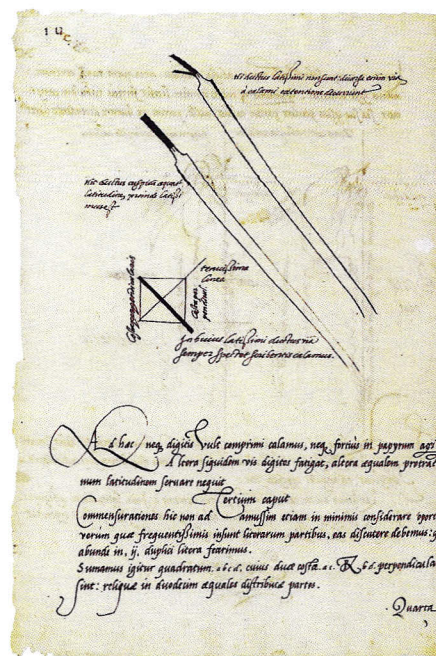 Hi ductus latissimi non sunt, diversa enim via
a calami extentione decurrunt
Hic ductus cuspidis æquat
latitudinem, proinde latissi
mus est
tenuissima
linea
In huius latissimi ductus via
semper spectet scribentis calamus.
Ad hæc neq digitis vult comprimi calamus, neq fortius in papyrum agi
Altera siquidem vis digitos fatigat, altera æqualem protrac
num latitudinem servare nequit
Tertium caput
Commensurationes hic non ad amussim etiam in minimis considerare oport
verum quæ frequentissimis insunt literarum partibus, eas discutere debemus:
abunde in, ij, duplici litera fecerimus.
Sumamus igitur quadratum. a b c d. cuius duæ costæ. a c. & b d. perpendicula
sint: reliquæ in duodecim æquales distribuæ partes.
Quarta